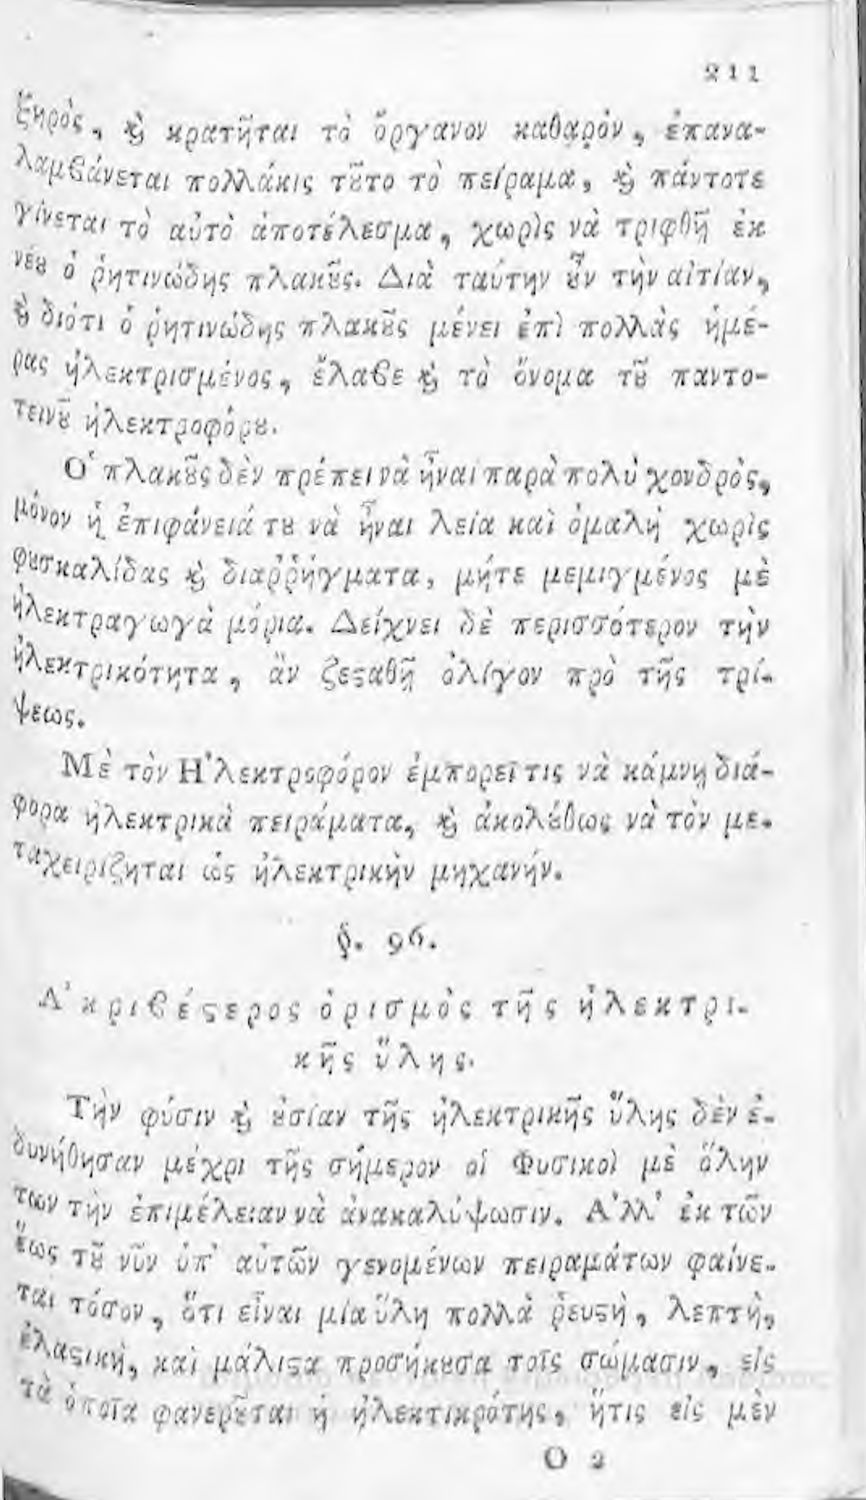 211
ξηρὸς, ϗ̀ κρατῆται τὸ ὄργανον καθαρὸν, ἐπανα-
λαμϐάνεται πολλάκις τȣ͂το τὸ πείραμα, ϗ̀ πάντοτε
γίνεται τὸ αὐτὸ ἀποτέλεσμα, χωρὶς νὰ τριφθῇ ἐκ
νέȣ ὁ ῥητινώδης πλακȣ͂ς. Διὰ ταύτην ȣ̓͂ν τὴν αἰτίαν,
ϗ̀ διότι ὁ ῥητινώδης πλακȣ͂ς μένει ἐπὶ πολλὰς ἡμέ-
ρας ἠλεκτρισμένος, ἔλαϐε ϗ̀ τὸ ὄνομα τȣ͂ παντο-
τεινȣ͂ ἠλεκτροφόρȣ.
Ὁ πλακȣ͂ς δὲν πρέπει νὰ ἦναι παρὰ πολὺ χονδρὸς,
μόνον ἡ ἐπιφάνειά τȣ νὰ ἦναι λεία καὶ ὁμαλὴ χωρὶς
φȣσκαλίδας ϗ̀ διαῤῥήγματα, μήτε μεμιγμένος μὲ
ἠλεκτραγωγὰ μόρια. Δείχνει δὲ περισσότερον τὴν
ἠλεκτρικότητα, ἂν ζεϛαθῇ ὀλίγον πρὸ τῆς τρί-
ψεως.
Μὲ τὸν Ἠλεκτροφόρον ἐμπορεῖ τις νὰ κάμνῃ διά-
φορα ἠλεκτρικὰ πειράματα, ϗ̀ ἀκολȣ́θως νὰ τὸν με-
ταχειρίζηται ὡς ἠλεκτρικὴν μηχανήν.
§. 96.
Ἀκριϐέϛερος ὁρισμὸς τῆς ἠλεκτρι-
κῆς ὕλης.
Τὴν φύσιν ϗ̀ ȣ̓σίαν τῆς ἠλεκτρικῆς ὕλης δὲν ἐ-
δυνήθησαν μέχρι τῆς σήμερον οἱ Φυσικοὶ μὲ ὅλην
των τὴν ἐπιμέλειαν νὰ ἀνακαλύψωσιν. Ἀλλ' ἐκ τῶν
ἕως τȣ͂ νῦν ὑπ' αὐτῶν γενομένων πειραμάτων φαίνε-
ται τόσον, ὅτι εἶναι μία ὕλη πολλὰ ῥευϛὴ, λεπτὴ,
ἐλαϛικὴ, καὶ μάλιϛα προσήκȣσα τοῖς σώμασιν, εἰς
τὰ ὁποῖα φανερȣ͂ται ἡ ἠλεκτικρότης, ἥτις εἰς μὲν
Ο 2